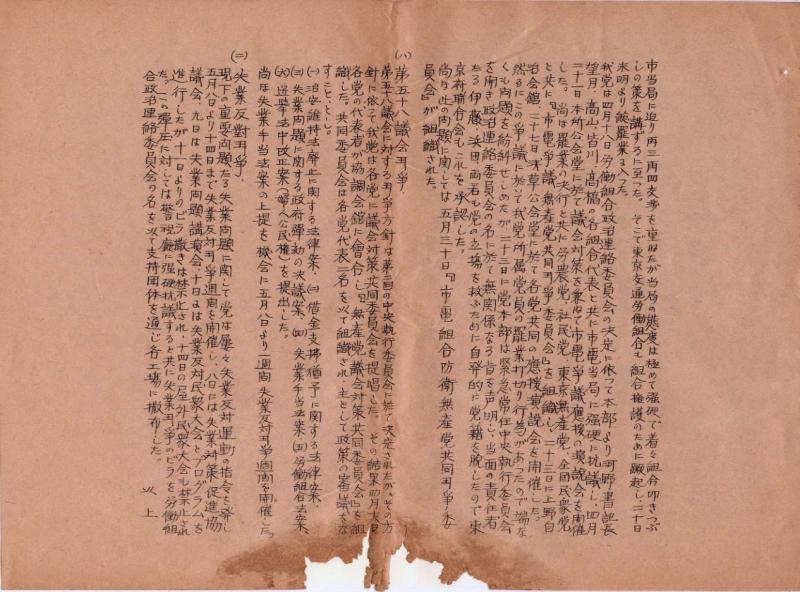 市当局に迫り再三再四交渉を重ねたが当局の態度は極めて強硬で着々組合叩きつぶ
しの策を講ずるに至つた。そこで東京交通労働組合も組合擁護のために蹶起し、二十日
未明より総罷業に入つた。
我党は四月十八日労働組合政治連絡委員会の決定に依つて本部より河野書記長
望月、高山、皆川、高橋の各組合代表と共に市電当局に強硬に抗議し、四月
二十一日本所公会堂に於て議会対策を兼ねて市電争議応援の演説会を開催
した。尚ほ罷業の決行と共に労農党、社民党、東京無産党、全国民衆党
と共に『市電争議無産党共同斗争委員会』を組織し、二十三日に上野自
治会館、二十七日浅草公会堂に於て各党共同の応援演説会を開催した。
然るにこの争議に於て我党所属党員の罷業打切り行為があつたので端な
くも問題を紛糾せしめたが二十三日に党本部は緊急常任中央執行委員会
を開き政治連絡委員会の名に於て無関係なる旨を声明し、当面の責任者
たる伊藤、浜田両君も党の立場を救ふために自発的に党籍を脱したので東
京府聯合会も二れを承認した。
尚ほ此の問題に関しては五月三十日『市電組合防衛無産党共同斗争委
員会』が組織された。
(八) 第五十八議会斗争
第五十八議会に対する斗争方針は第二回の中央執行委員会に於て決定されたが、その方
針に依つて我党は各党に議会対策共同委員会を提唱した。その結果四月九日
各党の代表者が協調会館に会合し『無産党議会対策共同委員会』を組
織した。共同委員会は各党代表二名を以て組織され、主として政策の審議をな
すこととし、
(一) 治安維持法廃止に関する法律案、(二) 借金支払猶予に関する法律案、
(三) 失業問題に関する政府弾劾の決議案、(四) 失業手当法案 (五) 労働組合法案、
(六) 選挙法中改正案(婦人公民権)を提出した。
尚ほ失業手当法案の上提を機会に五月八日より一週間失業反対斗争週間を開催した。
(二) 失業反対斗争、
現下の重要問題たる失業問題に関して党は屡々失業反対運動の指令を発し
五月八日より十四日まで失業反対斗争週間を開催し、八日には失業対策促進協
議会、九日は失業問題講演会、十日よは失業反対民衆大会とプログラムを
進行したが十一日よりのビラ撒きは禁止され、十四日の屋外民衆大会も禁止され
た。この弾圧に対しては警視庁に強硬抗議すると共に失業斗争のビラを労働組
合政治連絡委員会の名を以て支持団体を通じ各工場に撒布した。
以上